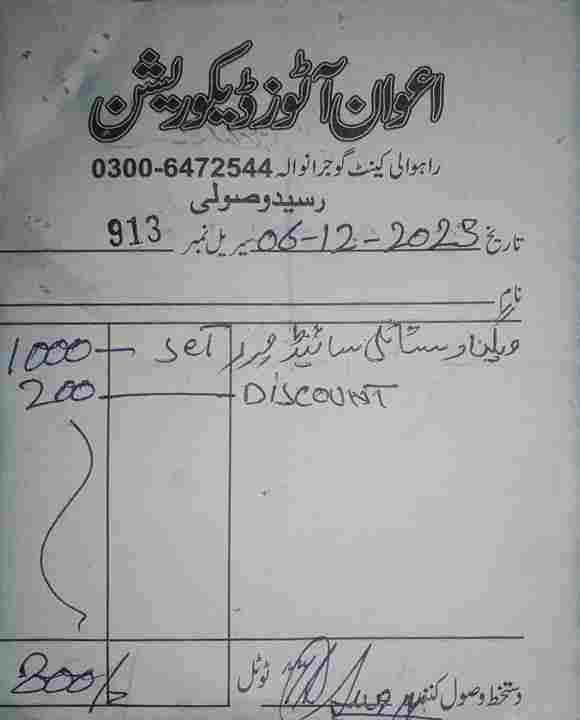 اعوان آٹوز ڈیکوریشن
راہوالی کینٹ گوجرانوالہ 0300-6472544
رسید وصولی
تاریخ 06-12-2025 سیریل نمبر 913
نام
سائیڈ مرر set 1000
DISCOUNT 200
دستخط وصول کنندہ ٹوٹل 800/